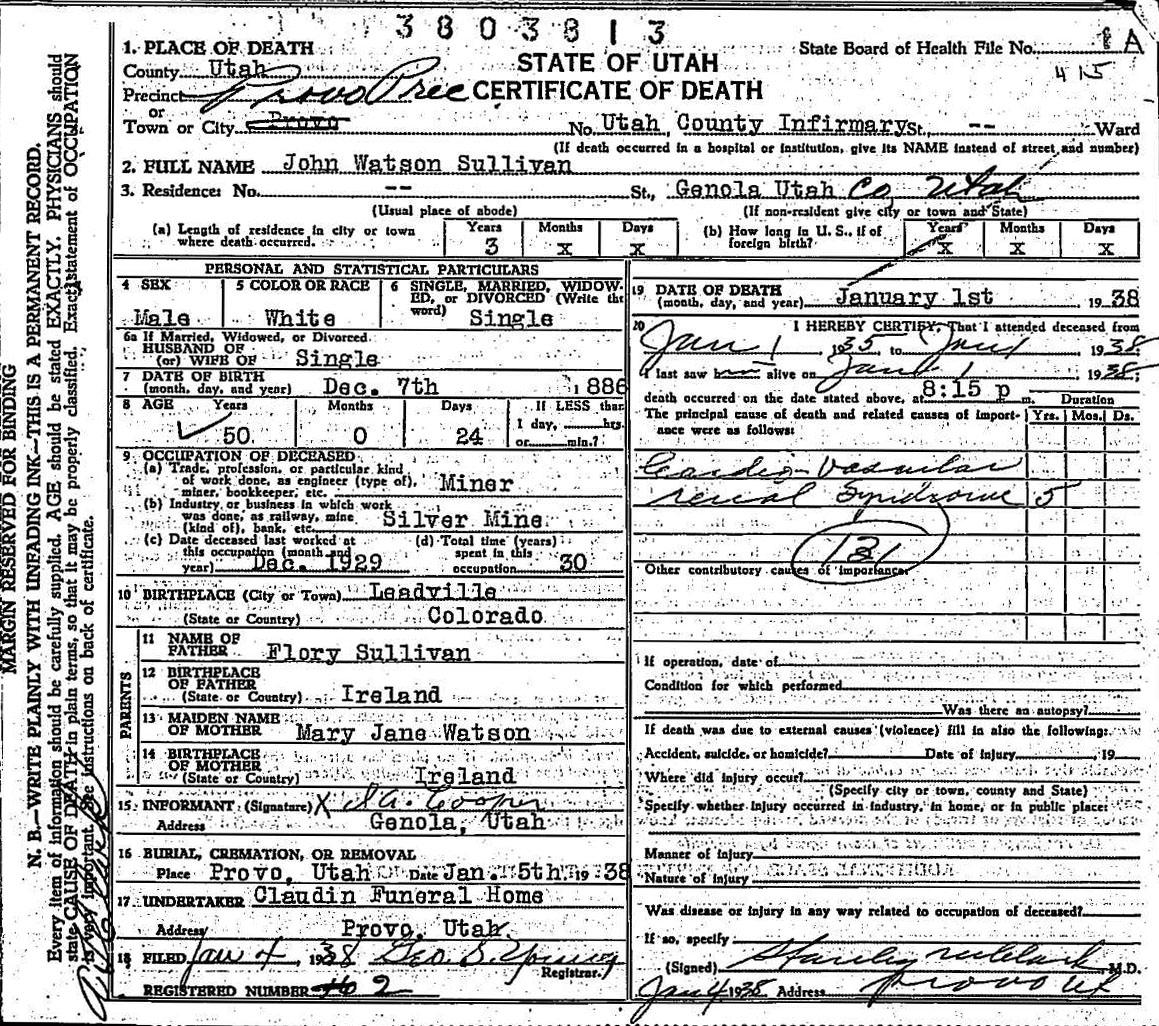 3803813
1. PLACE OF DEATH
State Board of Health File No. 1A
415
County Utah
STATE OF UTAH
Precinct Provo Prec
CERTIFICATE OF DEATH
or
Town or City Provo No. Utah County Infirmary St., -- Ward
(If death occurred in a hospital or institution, give its NAME instead of street and number)
2. FULL NAME John Watson Sullivan
3. Residence: No. -- St., Genola Utah Co, Utah
(Usual place of abode) (If non-resident give city or town and State)
(a) Length of residence in city or town where death occurred. Years 3 Months X Days X
(b) How long in U. S., if of foreign birth? Years X Months X Days X
PERSONAL AND STATISTICAL PARTICULARS
4 SEX Male
5 COLOR OR RACE White
6 SINGLE, MARRIED, WIDOWED, or DIVORCED (Write the word) Single
6a If Married, Widowed, or Divorced
HUSBAND OF
(or) WIFE OF Single
7 DATE OF BIRTH
(month, day, and year) Dec. 7th 1886
8 AGE Years 50 Months 0 Days 24 If LESS than 1 day, hrs. or min.?
9 OCCUPATION OF DECEASED
(a) Trade, profession, or particular kind
of work done, as engineer (type of),
miner, bookkeeper, etc. Miner
(b) Industry or business in which work
was done, as railway, mine
(kind of), bank, etc. Silver Mine
(c) Date deceased last worked at
this occupation (month and
year) Dec. 1929
(d) Total time (years)
spent in this
occupation 30
10 BIRTHPLACE (City or Town) Leadville
(State or Country) Colorado
PARENTS
11 NAME OF
FATHER Flory Sullivan
12 BIRTHPLACE
OF FATHER
(State or Country) Ireland
13 MAIDEN NAME
OF MOTHER Mary Jane Watson
14 BIRTHPLACE
OF MOTHER
(State or Country) Ireland
15 INFORMANT (Signature) X Cooper
Address Genola, Utah
16 BURIAL, CREMATION, OR REMOVAL
Place Provo, Utah Date Jan. 5th 1938
17 UNDERTAKER Claudin Funeral Home
Address Provo, Utah.
18 FILED Jan 4 1938 Geo S. Young
Registrar.
REGISTERED NUMBER 2
19 DATE OF DEATH
(month, day, and year) January 1st 1938
20 I HEREBY CERTIFY, That I attended deceased from
Jan 1 1935 to Jan 1 1938
I last saw h alive on Jan 1 1938;
death occurred on the date stated above, at 8:15 p m.
Duration
The principal cause of death and related causes of importance were as follows: Yrs. Mos. Ds.
Cardio-Vascular
renal Syndrome 5
131
Other contributory causes of importance:
If operation, date of
Condition for which performed
Was there an autopsy?
If death was due to external causes (violence) fill in also the following:
Accident, suicide, or homicide? Date of injury 19
Where did injury occur?
(Specify city or town, county and State)
Specify whether injury occurred in industry, in home, or in public place:
Manner of injury
Nature of injury
Was disease or injury in any way related to occupation of deceased?
If so, specify
(Signed) Stanley M.D.
Jan 4 1938 Address Provo Ut
MARGIN RESERVED FOR BINDING
N. B.—WRITE PLAINLY WITH UNFADING INK—THIS IS A PERMANENT RECORD.
Every item of information should be carefully supplied. AGE should be stated EXACTLY. PHYSICIANS should
state CAUSE OF DEATH in plain terms, so that it may be properly classified. Exact statement of OCCUPATION
is very important. See instructions on back of certificate.